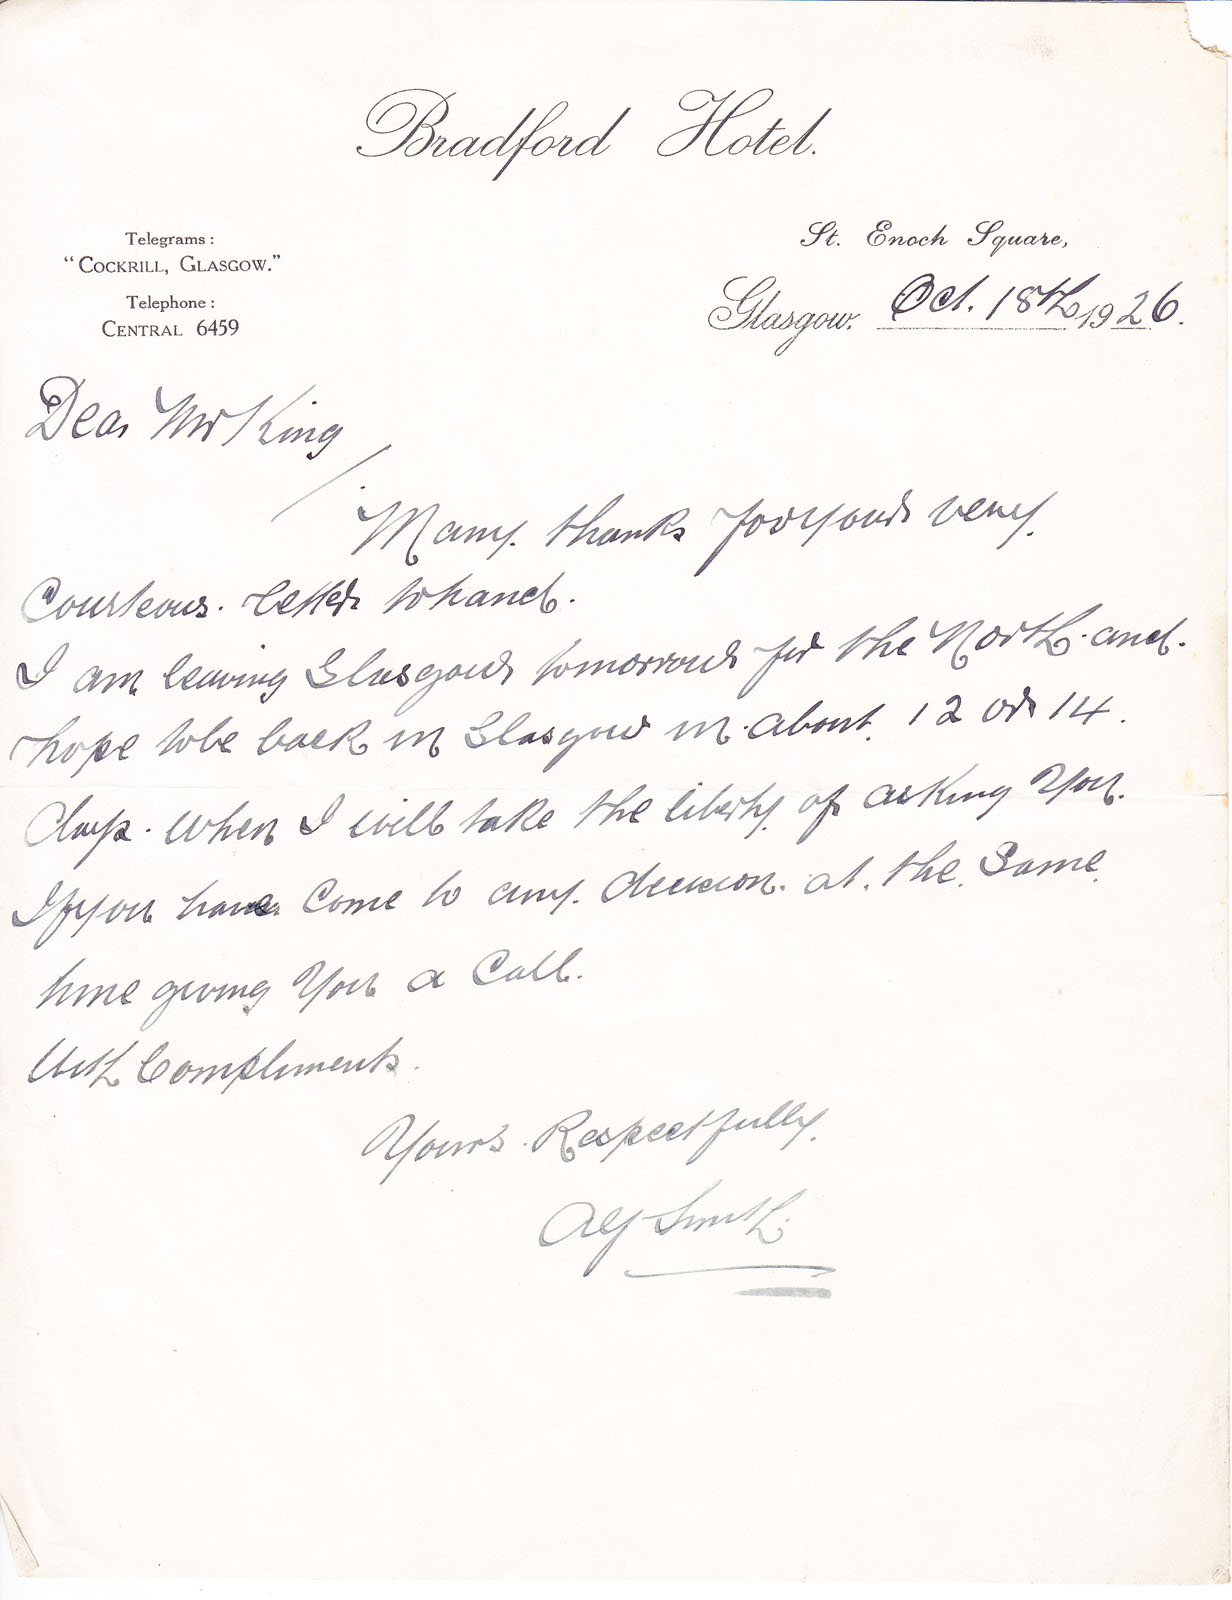 Bradford Hotel.
Telegrams:
"COCKRILL, GLASGOW."
Telephone:
CENTRAL 6459
St. Enoch Square,
Glasgow. Oct. 18th 1926.
Dear Mr King
Many thanks for your very
Courteous letter to hand.
I am leaving Glasgow tomorrow for the North and
hope to be back in Glasgow in about 12 or 14
days. When I will take the liberty of asking You
If you have Come to any decision at the Same
time giving You a Call.
With Compliments
Yours Respectfully
Alf Smith